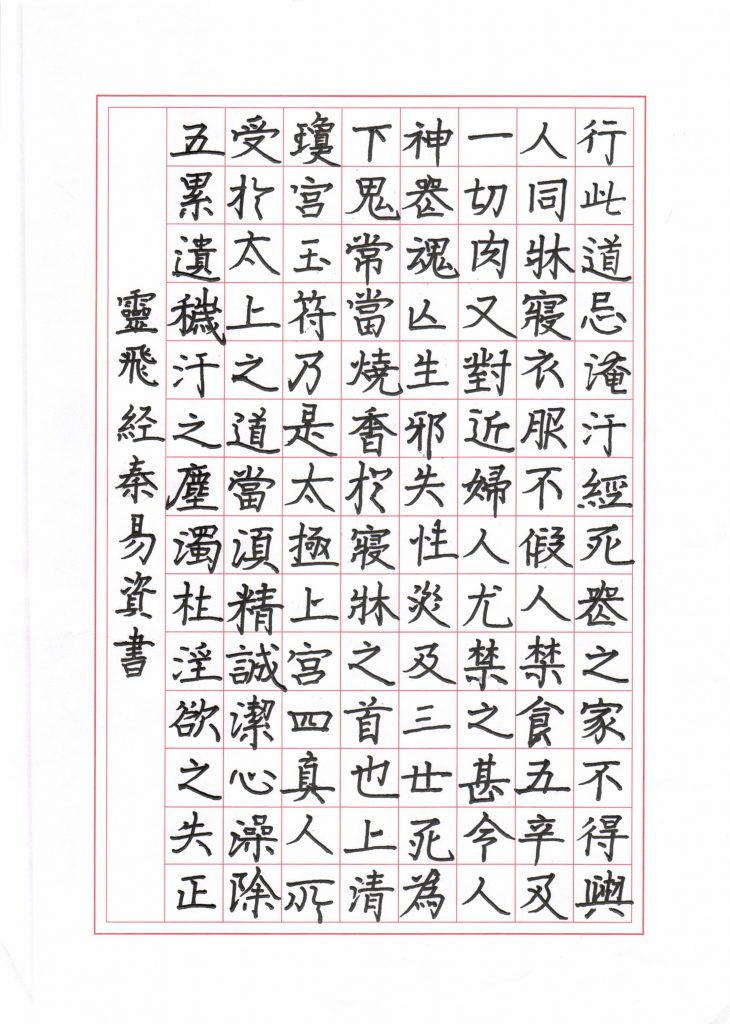 行此道忌淹汙經死喪之家不得與
人同牀寢衣服不假人禁食五辛及
一切肉又對近婦人尤禁之甚令人
神喪魂亡生邪失性災及三世死為
下鬼常當燒香於寢牀之首也上清
瓊宮玉符乃是太極上宮四真人所
受於太上之道當須精誠潔心澡除
五累遺穢汙之塵濁杜淫欲之失正
靈飛经秦易資書